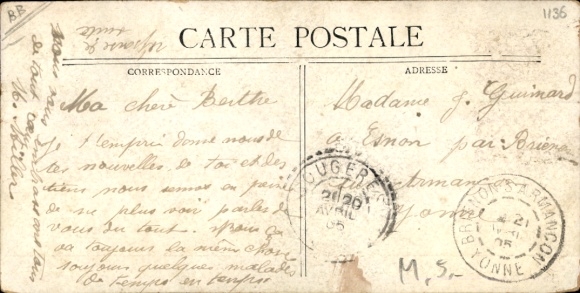 BB
1136
CARTE POSTALE
CORRESPONDANCE
ADRESSE
Ma cherè Berthe
Je t'emprie donne nous de
tes nouvelles de toi et des
tiens nous somes en peine
de ne plus voir parler de
vous du tout. Nous
va toujours la même chose
toujours quelques malades
de temps en temps
réponse de
suite
Nous vous embrassons tous
de tout
Madame J. Guimard
a Esnon par Briénon
sur Armançon
Yonne
FOUGÈRES
20
AVRIL
05
BRIENON S ARMANÇON
21
AVRIL
05
YONNE
M. S.